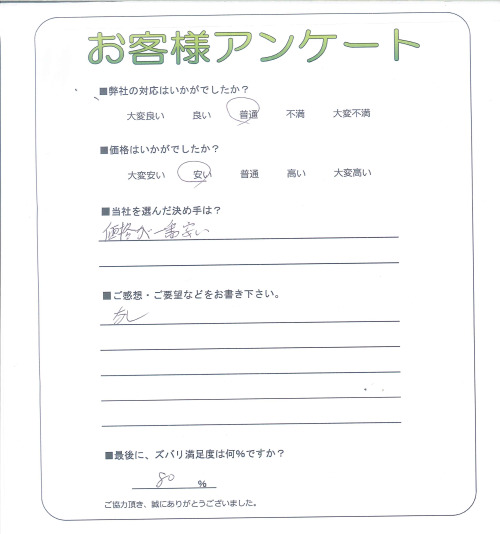 お客様アンケート
■弊社の対応はいかがでしたか？
大変良い 良い 普通 不満 大変不満
■価格はいかがでしたか？
大変安い 安い 普通 高い 大変高い
■当社を選んだ決め手は？
価格が一番安い
■ご感想・ご要望などをお書き下さい。
なし
■最後に、ズバリ満足度は何％ですか？
80 ％
ご協力頂き、誠にありがとうございました。